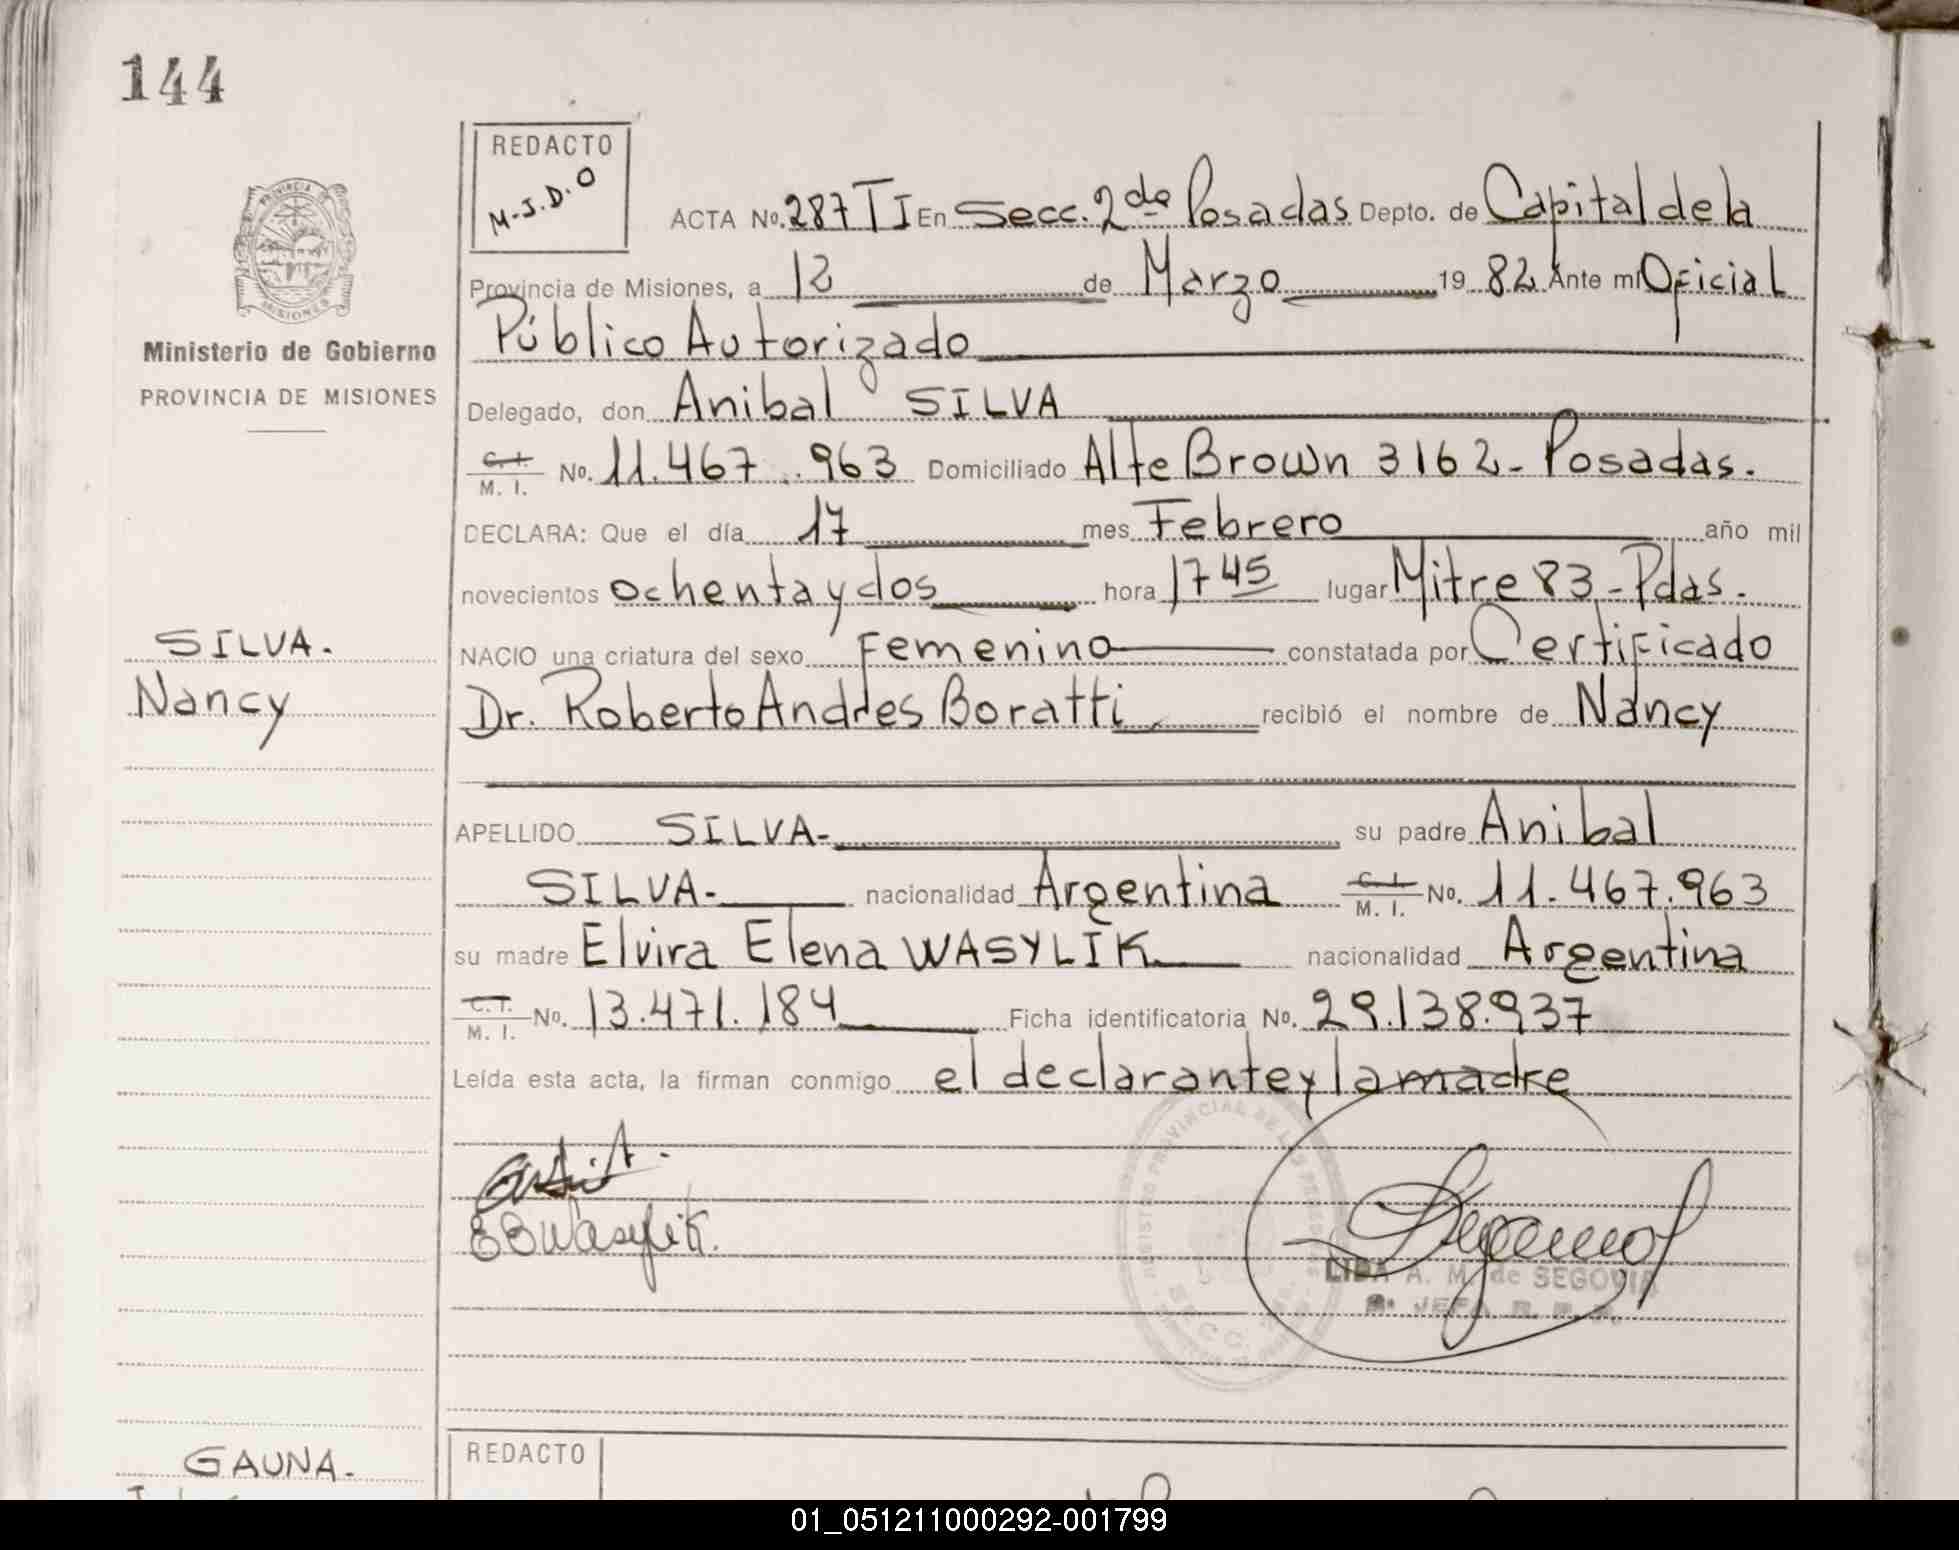 144
REDACTO
M.J.D.O
ACTA No. 287 TI En Secc. 2da Posadas Depto. de Capital de la
Provincia de Misiones, a 12 de Marzo 19 82 Ante mí Oficial
Público Autorizado
Ministerio de Gobierno
PROVINCIA DE MISIONES
Delegado, don Anibal SILVA
C. I.
M. I. No. 11.467.963 Domiciliado Alte Brown 3162 - Posadas.
DECLARA: Que el día 17 mes Febrero año mil
novecientos ochenta y dos hora 17 45 lugar Mitre 83 - Pdas.
SILVA.
Nancy
NACIO una criatura del sexo Femenino constatada por Certificado
Dr. Roberto Andres Boratti recibió el nombre de Nancy
APELLIDO SILVA- su padre Anibal
SILVA- nacionalidad Argentina C. I.
M. I. No. 11.467.963
su madre Elvira Elena WASYLIK nacionalidad Argentina
C. I.
M. I. No. 13.471.184 Ficha identificatoria No. 29.138.937
Leída esta acta, la firman conmigo el declarante y la madre
LIDA A. M. de SEGOVIA
GAUNA-
REDACTO
01_051211000292-001799